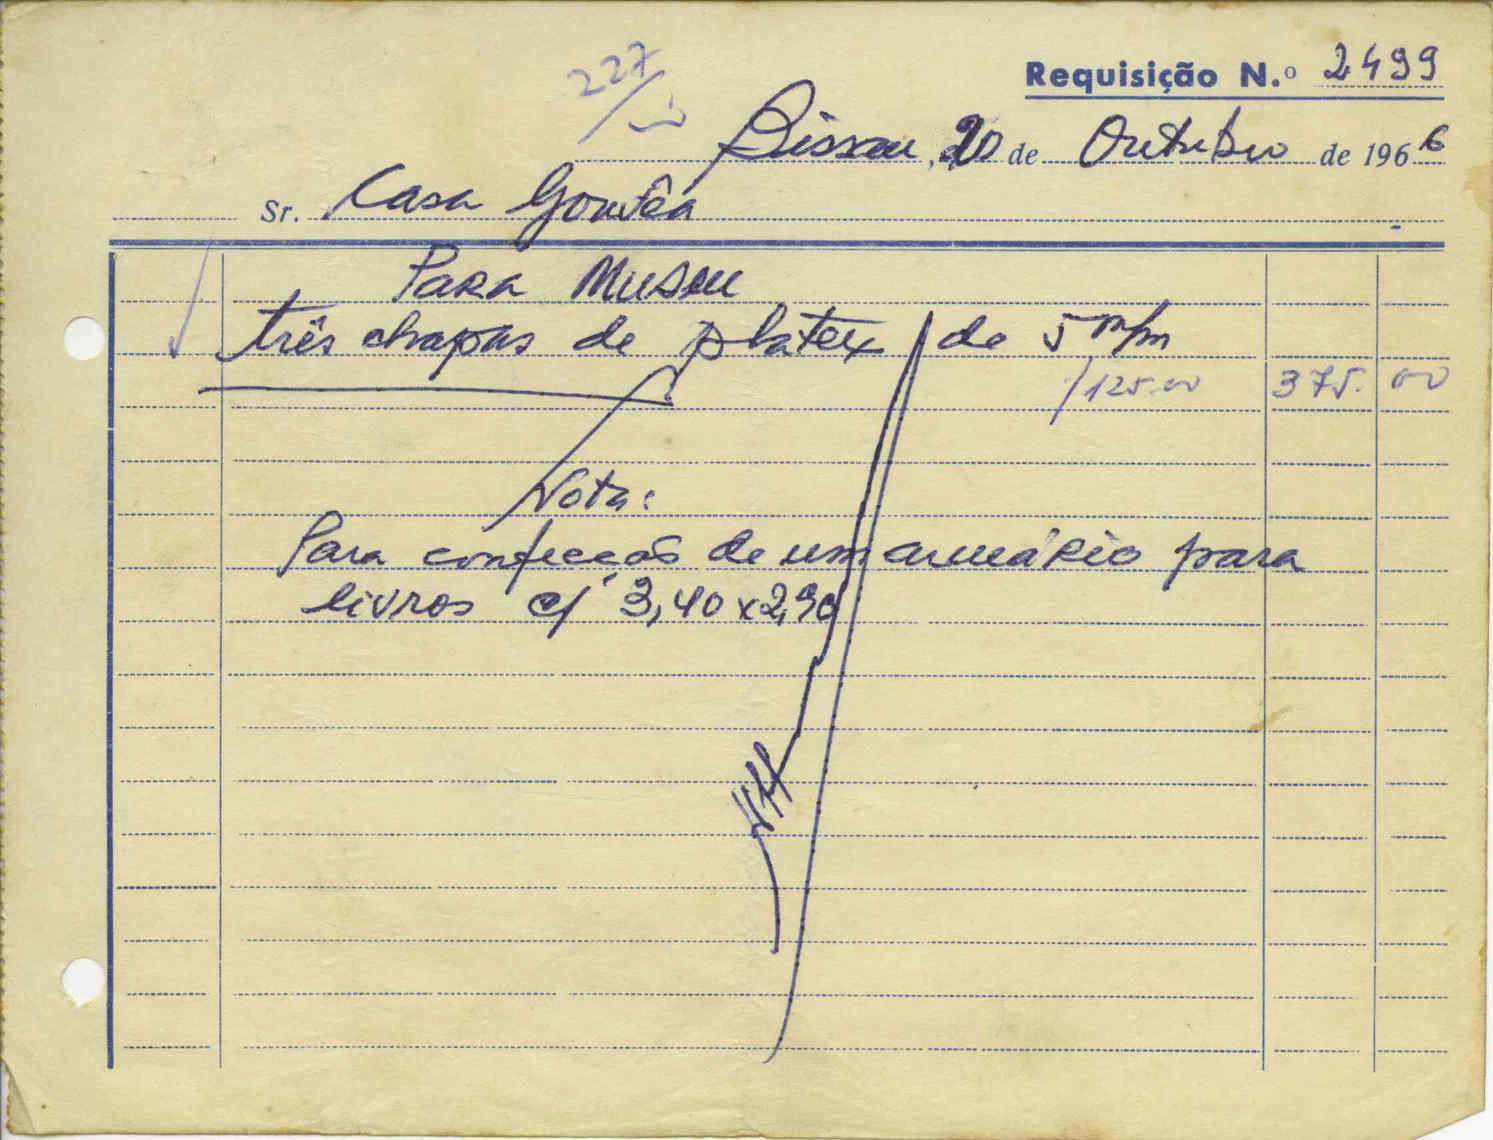 227
Requisição N.º 2499
Bissau, 20 de Outubro de 1966
Sr. Casa Gouvêa
Para Museu
três chapas de platex de 5 m/m
/125.00 375. 00
Nota:
Para confecção de um armário para
livros c/ 3,40 x 2,90